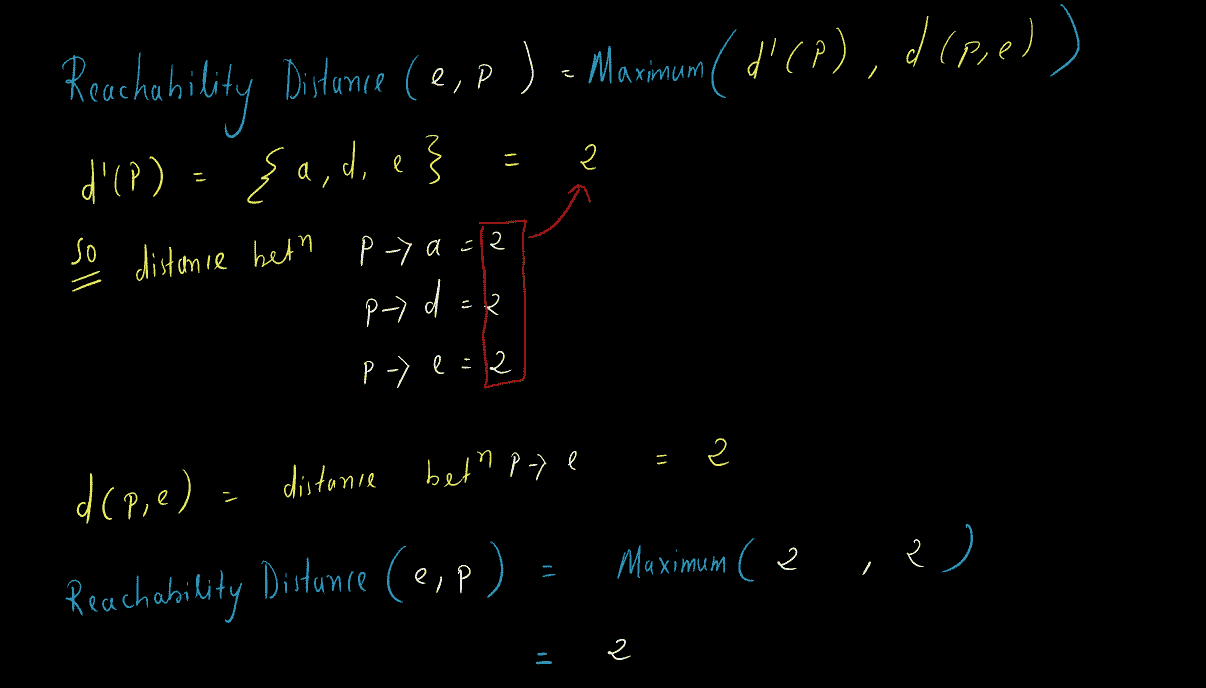 Reachability Distance (e, p) = Maximum(d'(P), d(p,e))
d'(P) = {a, d, e} = 2
So distance betⁿ P → a = 2
P → d = 2
P → e = 2
d(p,e) = distance betⁿ P → e = 2
Reachability Distance (e, p) = Maximum(2, 2)
= 2